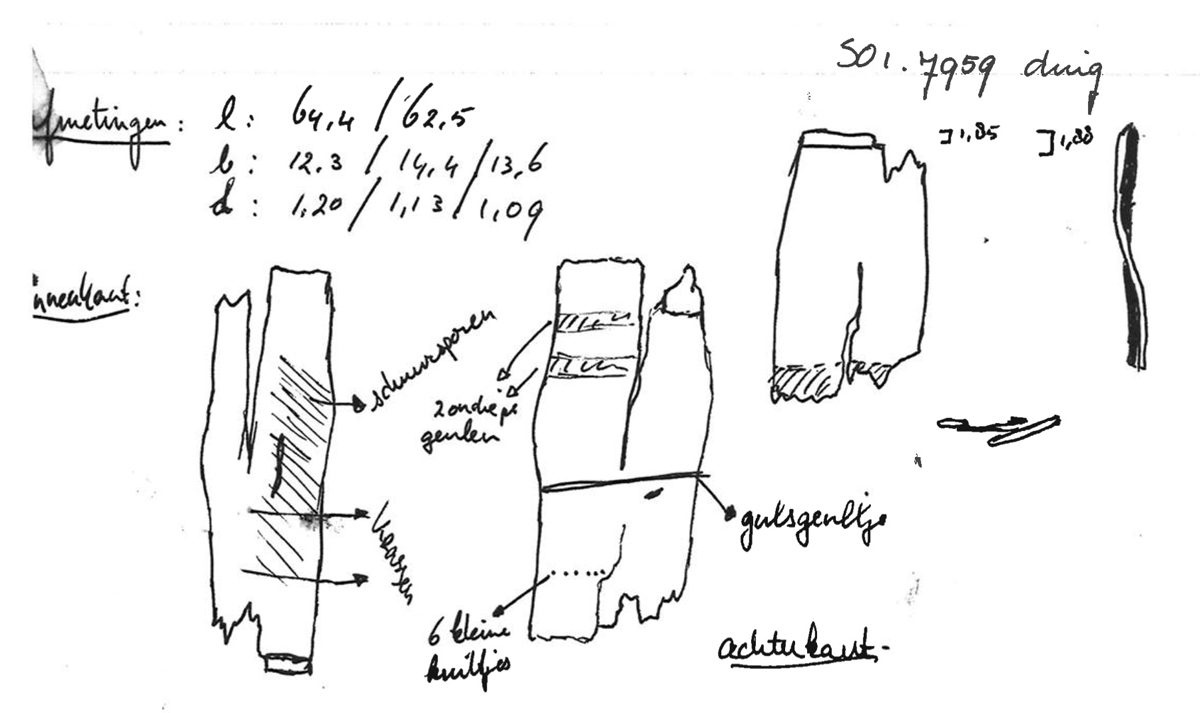 SO1.7959 duig
Afmetingen: l: 64,4 / 62,5
b: 12.3 / 14,4 / 13,6
d: 1.20 / 1,13 / 1,09
]1,85
]1,88
innenkant:
schuursporen
krassen
2 ondiepe
geulen
gutsgeultje
6 kleine
kuiltjes
achterkant.